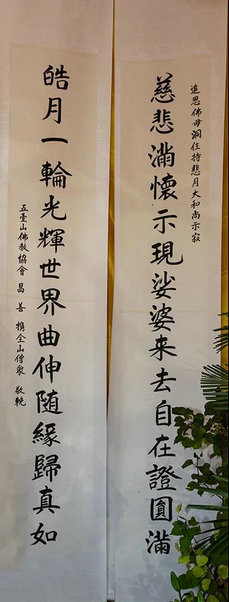 追思佛母洞住持悲月大和尚示寂
慈悲滿懷示現娑婆来去自在證圓滿
皓月一輪光輝世界曲伸随緣歸真如
五臺山佛教協會 昌善 携全山僧眾 敬輓